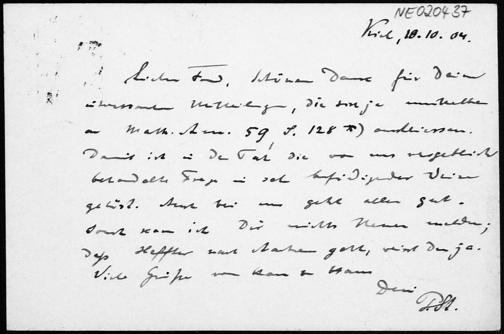 NE020437
Kiel, 18.10.04.
Lieber Freund, Schönen Dank für Deine
interessanten Mitteilungen, die sich ja unmittelbar
an Math. Ann. 59, S. 128 *) anschliessen.
Damit ist in der Tat die von uns vergeblich
behandelte Frage in sehr befriedigender Weise
gelöst. Auch bei uns geht alles gut.
Sonst kann ich Dir nichts Neues melden;
daß Heffter nach Aachen geht, weißt Du ja.
Viele Grüße von Haus zu Haus
Dein
P. St.